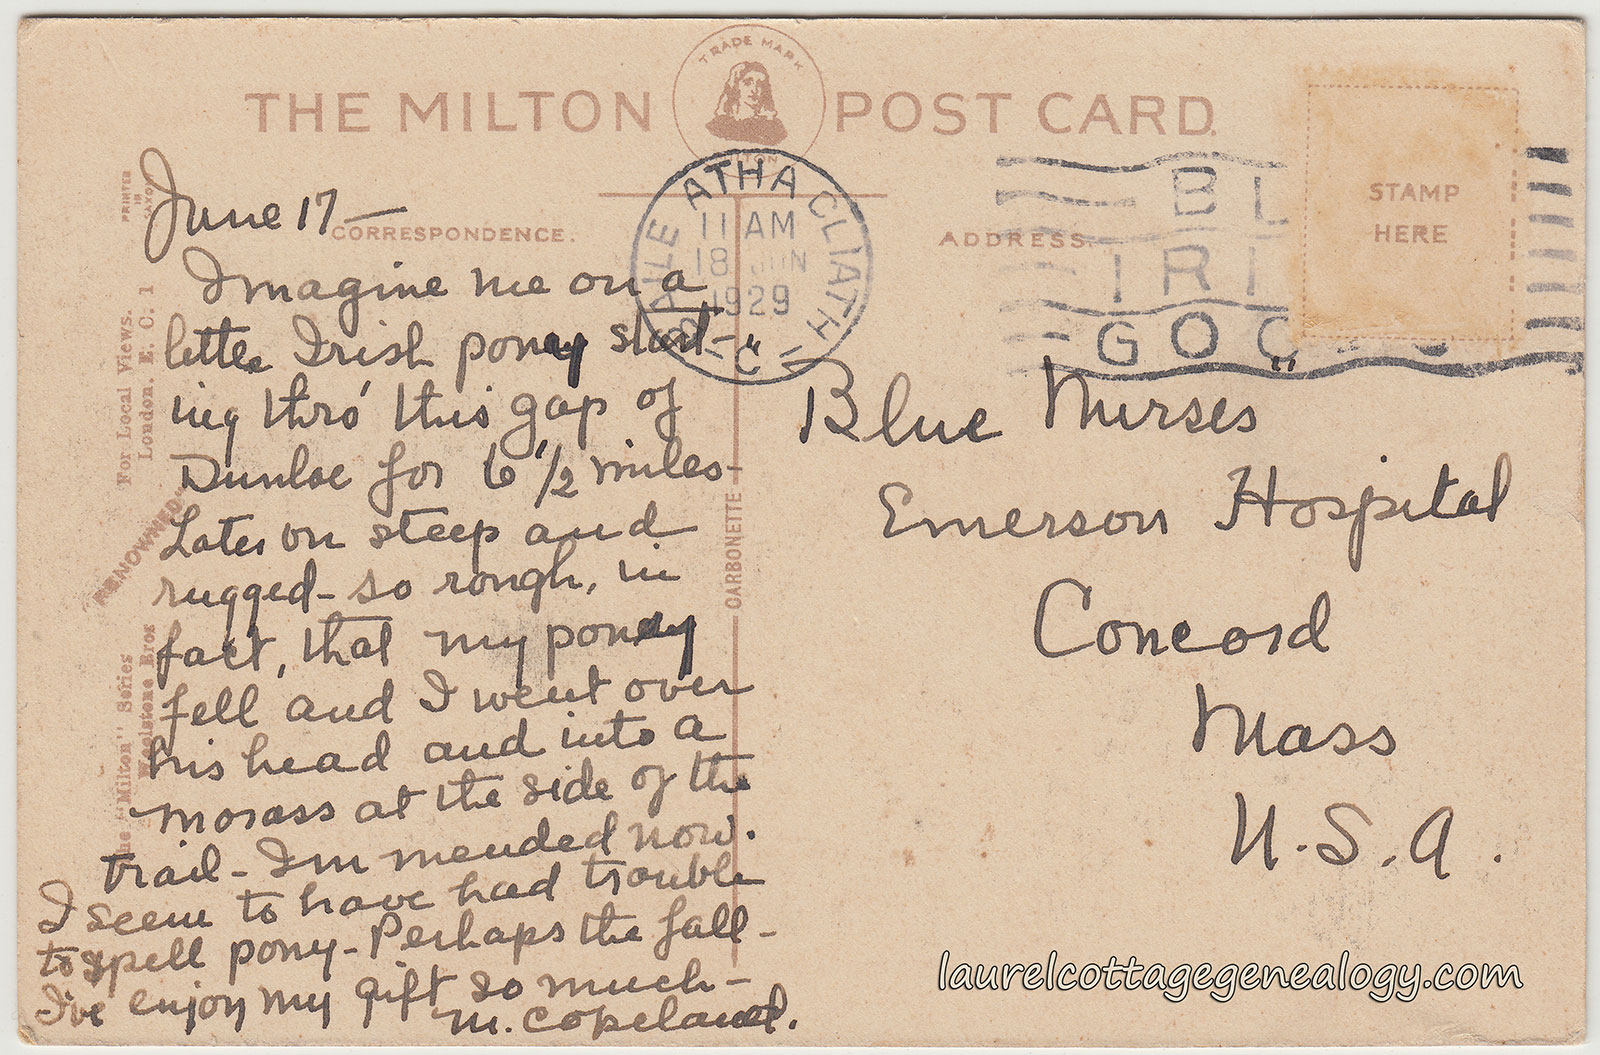 THE MILTON POST CARD.
TRADE MARK
MILTON
PRINTED
IN
SAXONY
CORRESPONDENCE.
ADDRESS.
STAMP
HERE
BAILE ATHA CLIATH
11 AM
18 JUN
1929
"C"
BL
IRI
GO
June 17—
Imagine me on a
little Irish poney start-
ing thro' this gap of
Dunloe for 6 1/2 miles-
Later on steep and
rugged- so rough, in
fact, that my poney
fell and I went over
his head and into a
morass at the side of the
trail- I'm mended now.
I seem to have had trouble
to spell pony- Perhaps the fall-
I've enjoy my gift so much-
M. Copeland.
"Blue Nurses"
Emerson Hospital
Concord
Mass
U.S.A.
CARBONETTE
The "Milton" Series
Woolstone Bros
"RENOWNED"
For Local Views.
London. E. C. 1
laurelcottagegenealogy.com